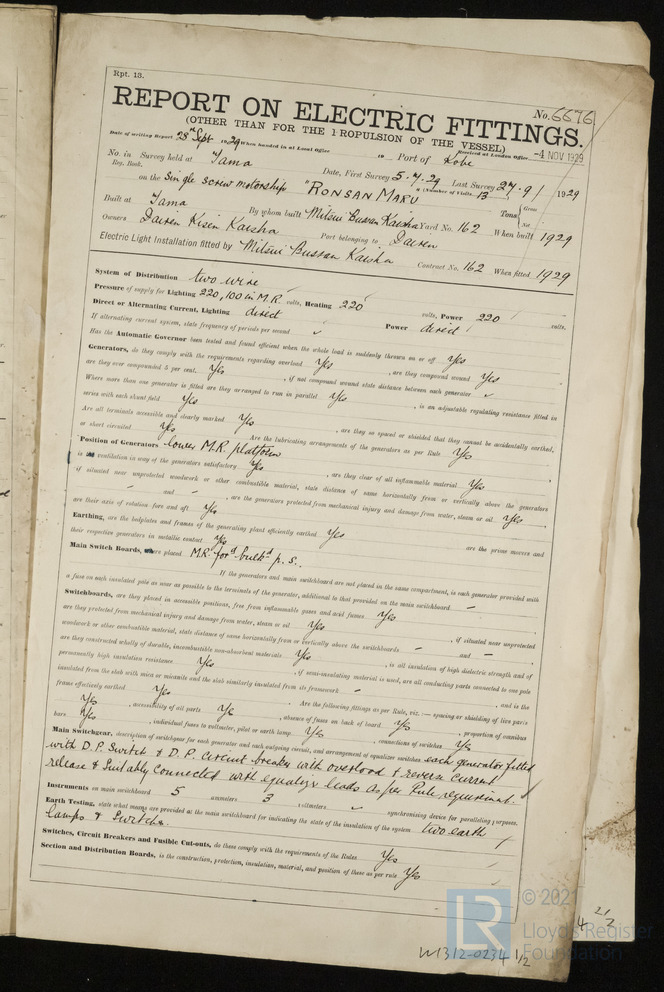 Rpt. 13.
No. 6676
REPORT ON ELECTRIC FITTINGS.
(OTHER THAN FOR THE PROPULSION OF THE VESSEL)
Date of writing Report 28th Sept 1929 When handed in at Local Office 19 Port of Kobe Received at London Office -4 NOV 1929
No. in Survey held at Tama Date, First Survey 5.7.29 Last Survey 27.9 1929
Reg. Book. (Number of Visits 13
on the Single screw motorship "RONSAN MARU" Tons Gross Net
Built at Tama By whom built Mitsui Bussan Kaisha Yard No. 162 When built 1929
Owners Dairen Kisen Kaisha Port belonging to Dairen
Electric Light Installation fitted by Mitsui Bussan Kaisha Contract No. 162 When fitted 1929
System of Distribution two wire
Pressure of supply for Lighting 220, 100 in M.R. volts, Heating 220 volts, Power 220 volts.
Direct or Alternating Current, Lighting direct Power direct
If alternating current system, state frequency of periods per second
Has the Automatic Governor been tested and found efficient when the whole load is suddenly thrown on or off Yes
Generators, do they comply with the requirements regarding overload Yes, are they compound wound Yes
are they over compounded 5 per cent. Yes, if not compound wound state distance between each generator
Where more than one generator is fitted are they arranged to run in parallel Yes, is an adjustable regulating resistance fitted in
series with each shunt field Yes
Are all terminals accessible and clearly marked Yes, are they so spaced or shielded that they cannot be accidentally earthed,
or short circuited Yes Are the lubricating arrangements of the generators as per Rule Yes
Position of Generators lower M.R. platform
is the ventilation in way of the generators satisfactory Yes, are they clear of all inflammable material Yes
if situated near unprotected woodwork or other combustible material, state distance of same horizontally from or vertically above the generators
- and -, are the generators protected from mechanical injury and damage from water, steam or oil Yes
are their axis of rotation fore and aft Yes
Earthing, are the bedplates and frames of the generating plant efficiently earthed Yes are the prime movers and
their respective generators in metallic contact Yes
Main Switch Boards, where placed M.R. ford bulkd p.s.
If the generators and main switchboard are not placed in the same compartment, is each generator provided with
a fuse on each insulated pole as near as possible to the terminals of the generator, additional to that provided on the main switchboard -
Switchboards, are they placed in accessible positions, free from inflammable gases and acid fumes Yes
are they protected from mechanical injury and damage from water, steam or oil Yes, if situated near unprotected
woodwork or other combustible material, state distance of same horizontally from or vertically above the switchboards - and -,
are they constructed wholly of durable, incombustible non-absorbent materials Yes, is all insulation of high dielectric strength and of
permanently high insulation resistance Yes, if semi-insulating material is used, are all conducting parts connected to one pole
insulated from the slab with mica or micanite and the slab similarly insulated from its framework -, and is the
frame effectively earthed Yes. Are the following fittings as per Rule, viz.:— spacing or shielding of live parts
Yes, accessibility of all parts Yes, absence of fuses on back of board Yes, proportion of omnibus
bars Yes, individual fuses to voltmeter, pilot or earth lamp Yes, connections of switches Yes
Main Switchgear, description of switchgear for each generator and each outgoing circuit, and arrangement of equalizer switches each generator fitted
with D.P. Switch & D.P. circuit breaker with overload & reverse current
release & suitably connected with equalizer leads as per Rule requirement.
Instruments on main switchboard 5 ammeters 3 voltmeters synchronising device for paralleling purposes.
Earth Testing, state what means are provided at the main switchboard for indicating the state of the insulation of the system two earth
lamps & switches.
Switches, Circuit Breakers and Fusible Cut-outs, do these comply with the requirements of the Rules Yes
Section and Distribution Boards, is the construction, protection, insulation, material, and position of these as per rule Yes
LR
© 202
Lloyd's Register
Foundation
W1312-0234 1/2